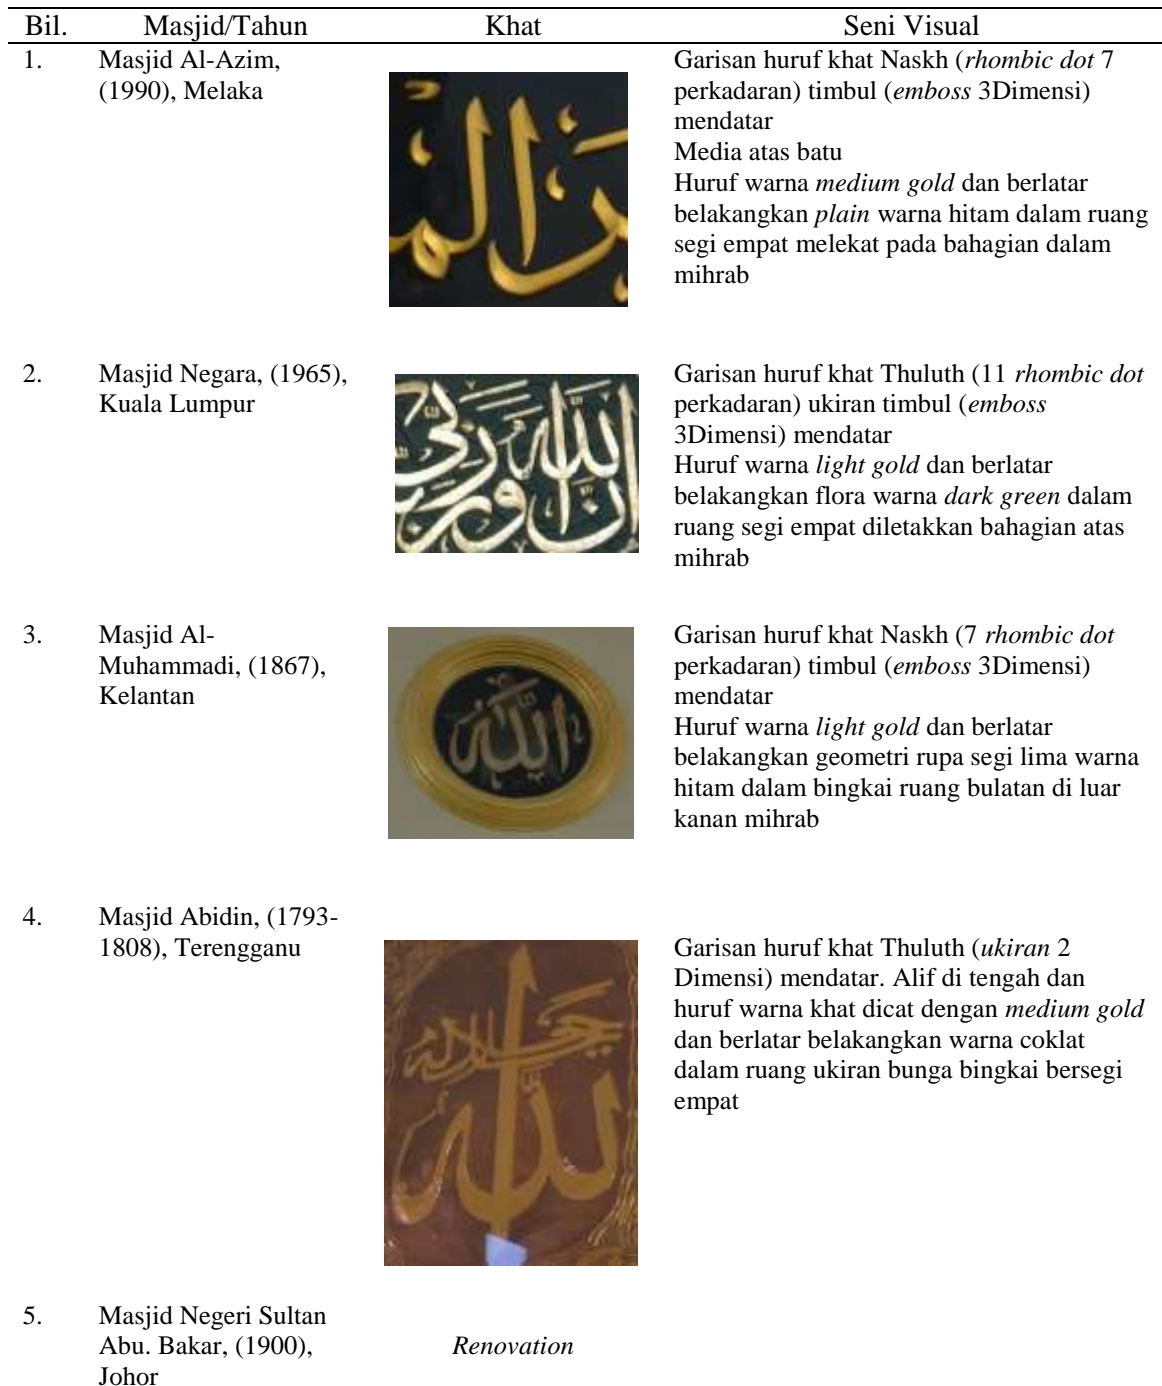 Bil. Masjid/Tahun Khat Seni Visual
1. Masjid Al-Azim,
(1990), Melaka
Garisan huruf khat Naskh (rhombic dot 7
perkadaran) timbul (emboss 3Dimensi)
mendatar
Media atas batu
Huruf warna medium gold dan berlatar
belakangkan plain warna hitam dalam ruang
segi empat melekat pada bahagian dalam
mihrab
2. Masjid Negara, (1965),
Kuala Lumpur
Garisan huruf khat Thuluth (11 rhombic dot
perkadaran) ukiran timbul (emboss
3Dimensi) mendatar
Huruf warna light gold dan berlatar
belakangkan flora warna dark green dalam
ruang segi empat diletakkan bahagian atas
mihrab
3. Masjid Al-
Muhammadi, (1867),
Kelantan
الله
Garisan huruf khat Naskh (7 rhombic dot
perkadaran) timbul (emboss 3Dimensi)
mendatar
Huruf warna light gold dan berlatar
belakangkan geometri rupa segi lima warna
hitam dalam bingkai ruang bulatan di luar
kanan mihrab
4. Masjid Abidin, (1793-
1808), Terengganu
الله
جل جلاله
Garisan huruf khat Thuluth (ukiran 2
Dimensi) mendatar. Alif di tengah dan
huruf warna khat dicat dengan medium gold
dan berlatar belakangkan warna coklat
dalam ruang ukiran bunga bingkai bersegi
empat
5. Masjid Negeri Sultan
Abu. Bakar, (1900),
Johor
Renovation